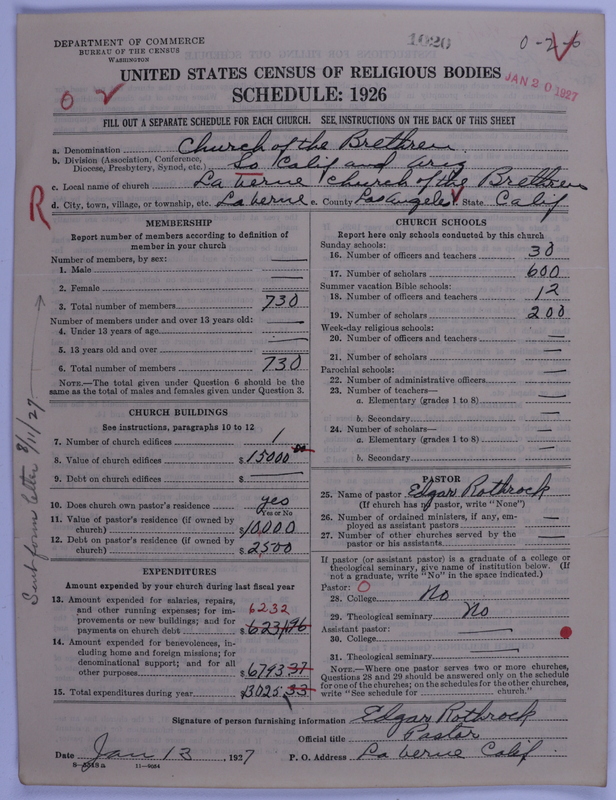 DEPARTMENT OF COMMERCE
BUREAU OF THE CENSUS
WASHINGTON
1020
0-2-6
UNITED STATES CENSUS OF RELIGIOUS BODIES
JAN 20 1927
SCHEDULE: 1926
FILL OUT A SEPARATE SCHEDULE FOR EACH CHURCH. SEE INSTRUCTIONS ON THE BACK OF THIS SHEET
a. Denomination Church of the Brethren
b. Division (Association, Conference, Diocese, Presbytery, Synod, etc.) So Calif and Ariz
c. Local name of church La Verne Church of the Brethren
R d. City, town, village, or township, etc. La Verne e. County Los Angeles f. State Calif
MEMBERSHIP
Report number of members according to definition of
member in your church
Number of members, by sex:
1. Male
2. Female
3. Total number of members 730
Number of members under and over 13 years old:
4. Under 13 years of age
5. 13 years old and over
6. Total number of members 730
NOTE.—The total given under Question 6 should be the
same as the total of males and females given under Question 3.
CHURCH BUILDINGS
See instructions, paragraphs 10 to 12
7. Number of church edifices 1
8. Value of church edifices $15000 00
9. Debt on church edifices $
10. Does church own pastor's residence yes
Yes or No
11. Value of pastor's residence (if owned by
church) $10000
12. Debt on pastor's residence (if owned by
church) $2500
EXPENDITURES
Amount expended by your church during last fiscal year
13. Amount expended for salaries, repairs,
and other running expenses; for im-
provements or new buildings; and for
payments on church debt 6232 $6231.96
14. Amount expended for benevolences, in-
cluding home and foreign missions; for
denominational support; and for all
other purposes $6793 37
15. Total expenditures during year $13025.33
Sent form letter 8/11/27
CHURCH SCHOOLS
Report here only schools conducted by this church
Sunday schools:
16. Number of officers and teachers 30
17. Number of scholars 600
Summer vacation Bible schools:
18. Number of officers and teachers 12
19. Number of scholars 200
Week-day religious schools:
20. Number of officers and teachers
21. Number of scholars
Parochial schools:
22. Number of administrative officers
23. Number of teachers—
a. Elementary (grades 1 to 8)
b. Secondary
24. Number of scholars—
a. Elementary (grades 1 to 8)
b. Secondary
PASTOR
25. Name of pastor Edgar Rothrock
(If church has no pastor, write "None")
26. Number of ordained ministers, if any, em-
ployed as assistant pastors
27. Number of other churches served by the
pastor or his assistants
If pastor (or assistant pastor) is a graduate of a college or
theological seminary, give name of institution below. (If
not a graduate, write "No" in the space indicated.)
Pastor: 0
28. College No
29. Theological seminary No
Assistant pastor:
30. College
31. Theological seminary
NOTE.—Where one pastor serves two or more churches,
Questions 28 and 29 should be answered only on the schedule
for one of the churches; on the schedules for the other churches,
write "See schedule for church."
Signature of person furnishing information Edgar Rothrock
Official title Pastor
Date Jan 13, 1927 P. O. Address La Verne Calif.
11-9084